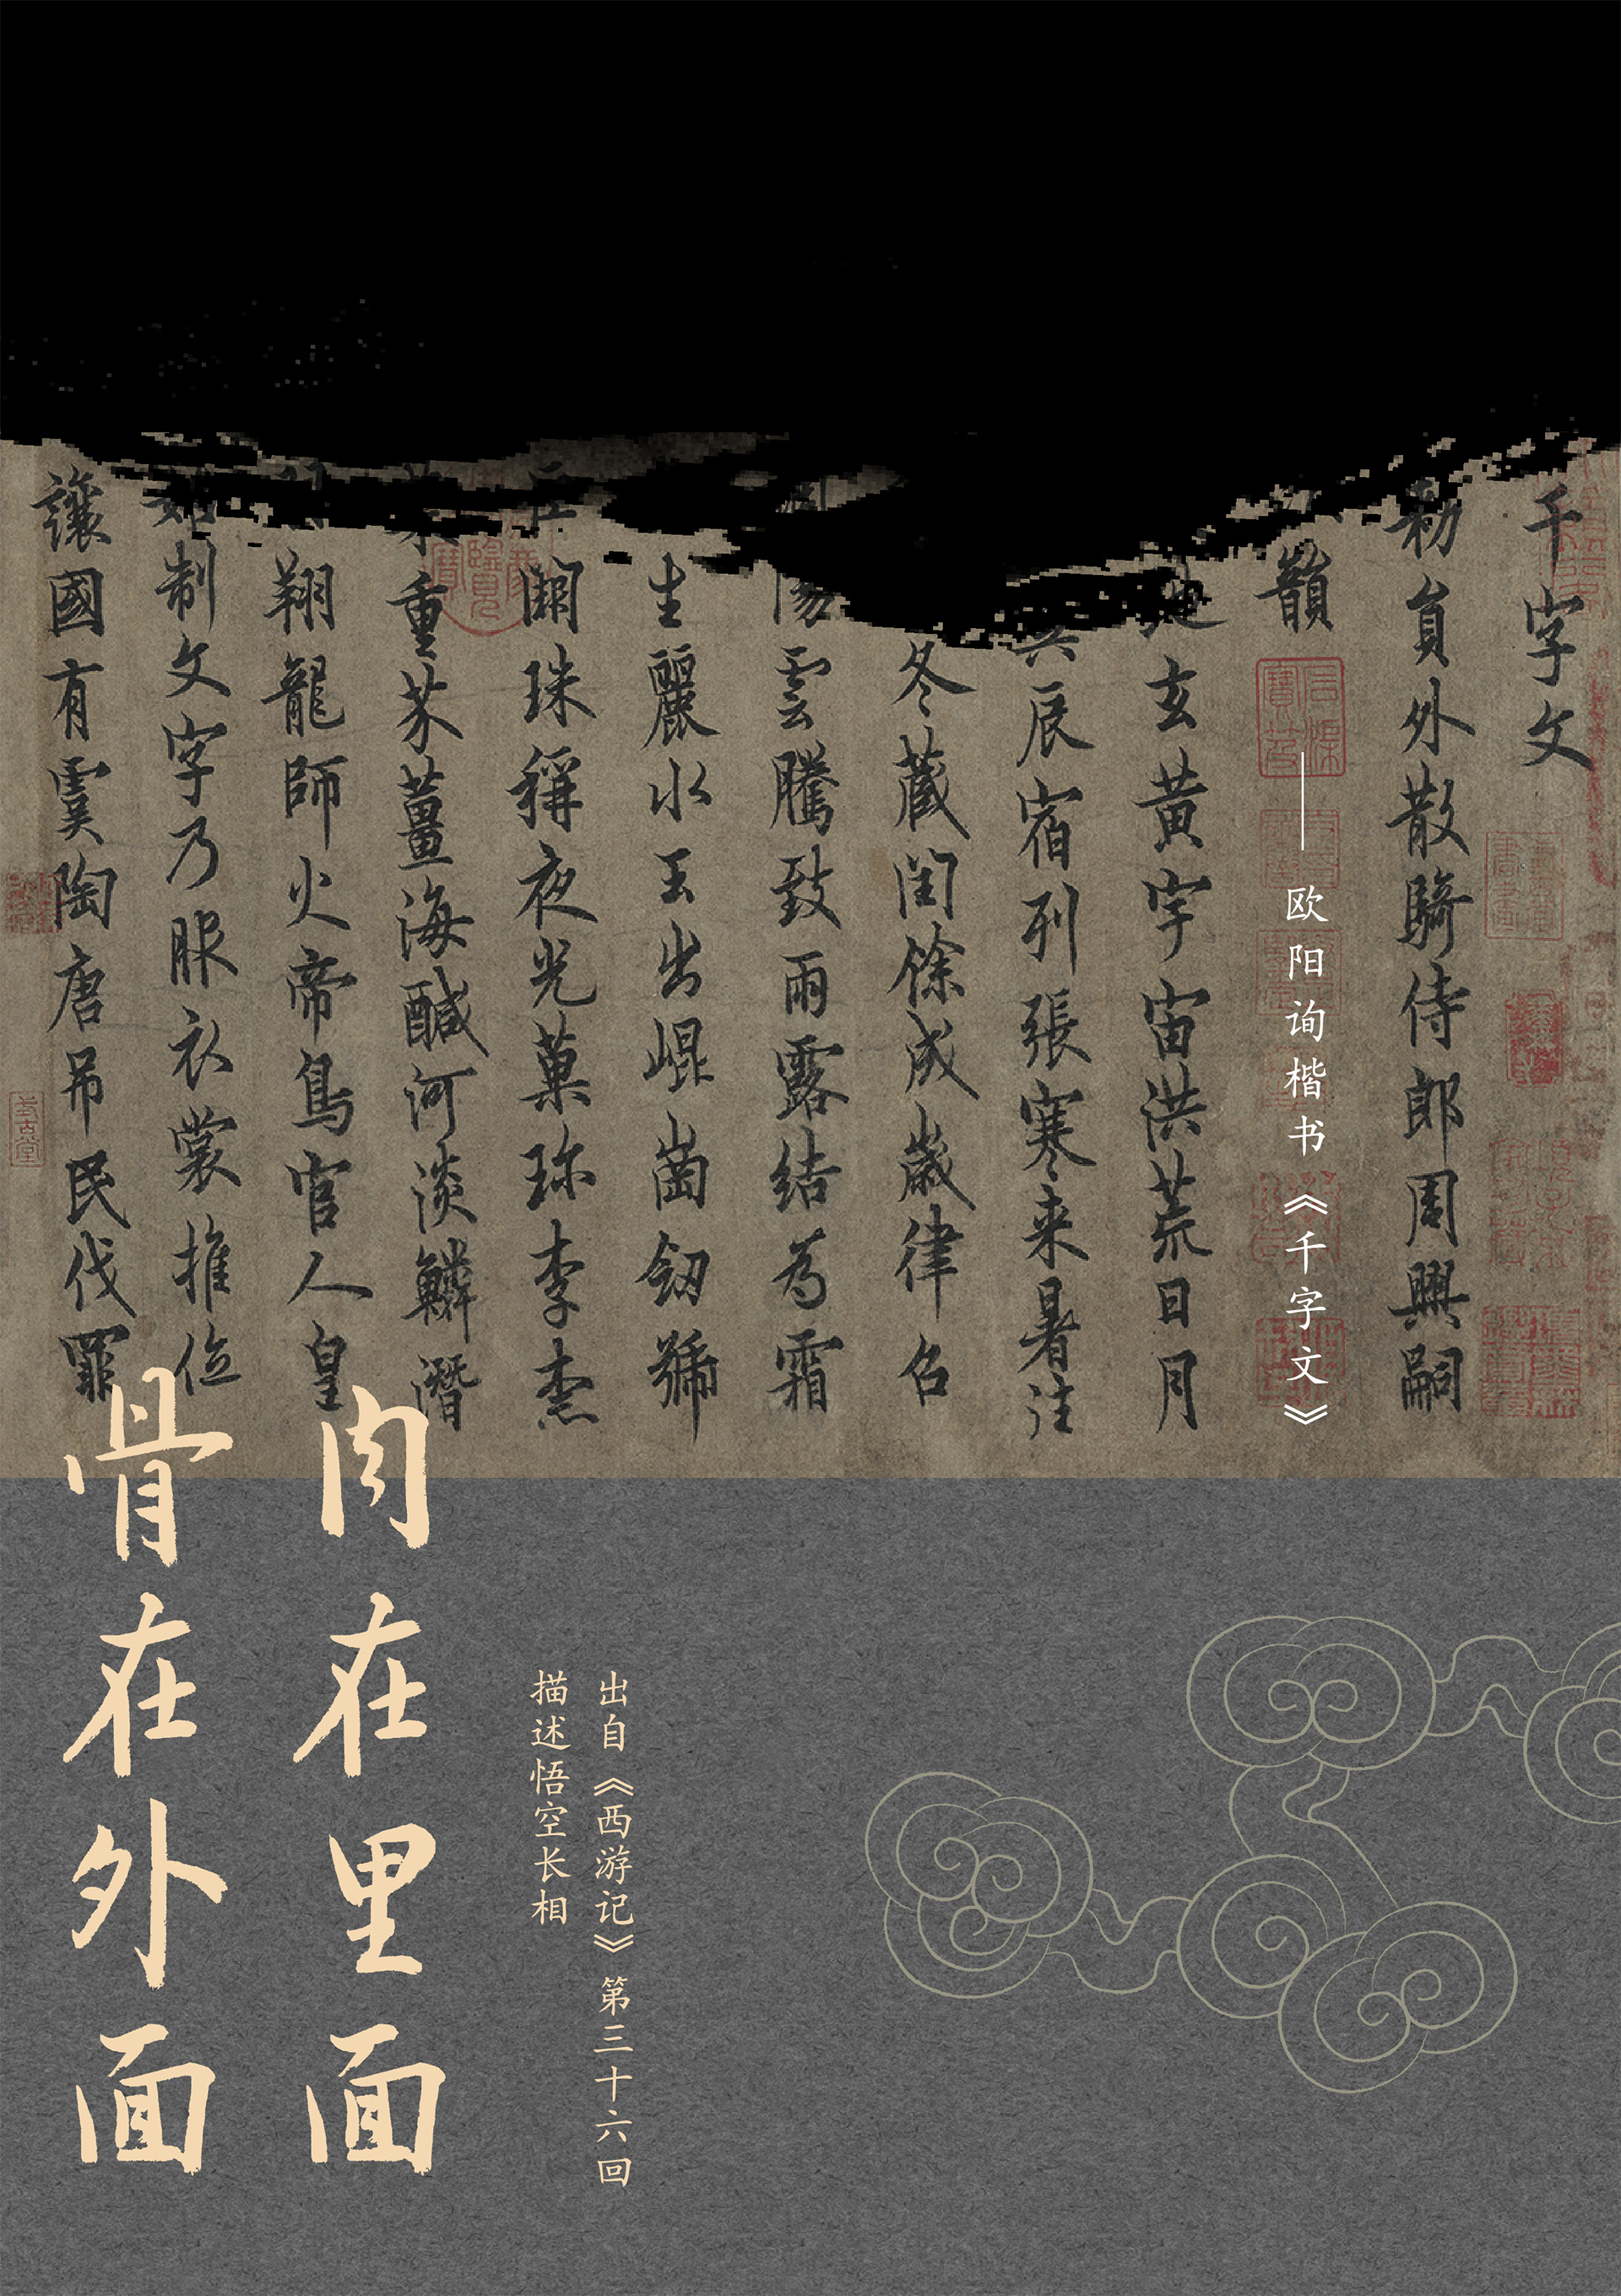 千字文
勑員外散騎侍郎周興嗣
韻
——欧阳询楷书《千字文》
玄黄宇宙洪荒日月
辰宿列張寒来暑往
冬蔵閏馀成歲律召
雲騰致雨露结為霜
生麗水玉出崐崗劒號
闕珠稱夜光菓珎李柰
重芥薑海醎河淡鱗潛
翔龍師火帝鳥官人皇
制文字乃服衣裳推位
讓國有虞陶唐吊民伐罪
肉在里面
骨在外面
出自《西游记》第三十六回
描述悟空长相